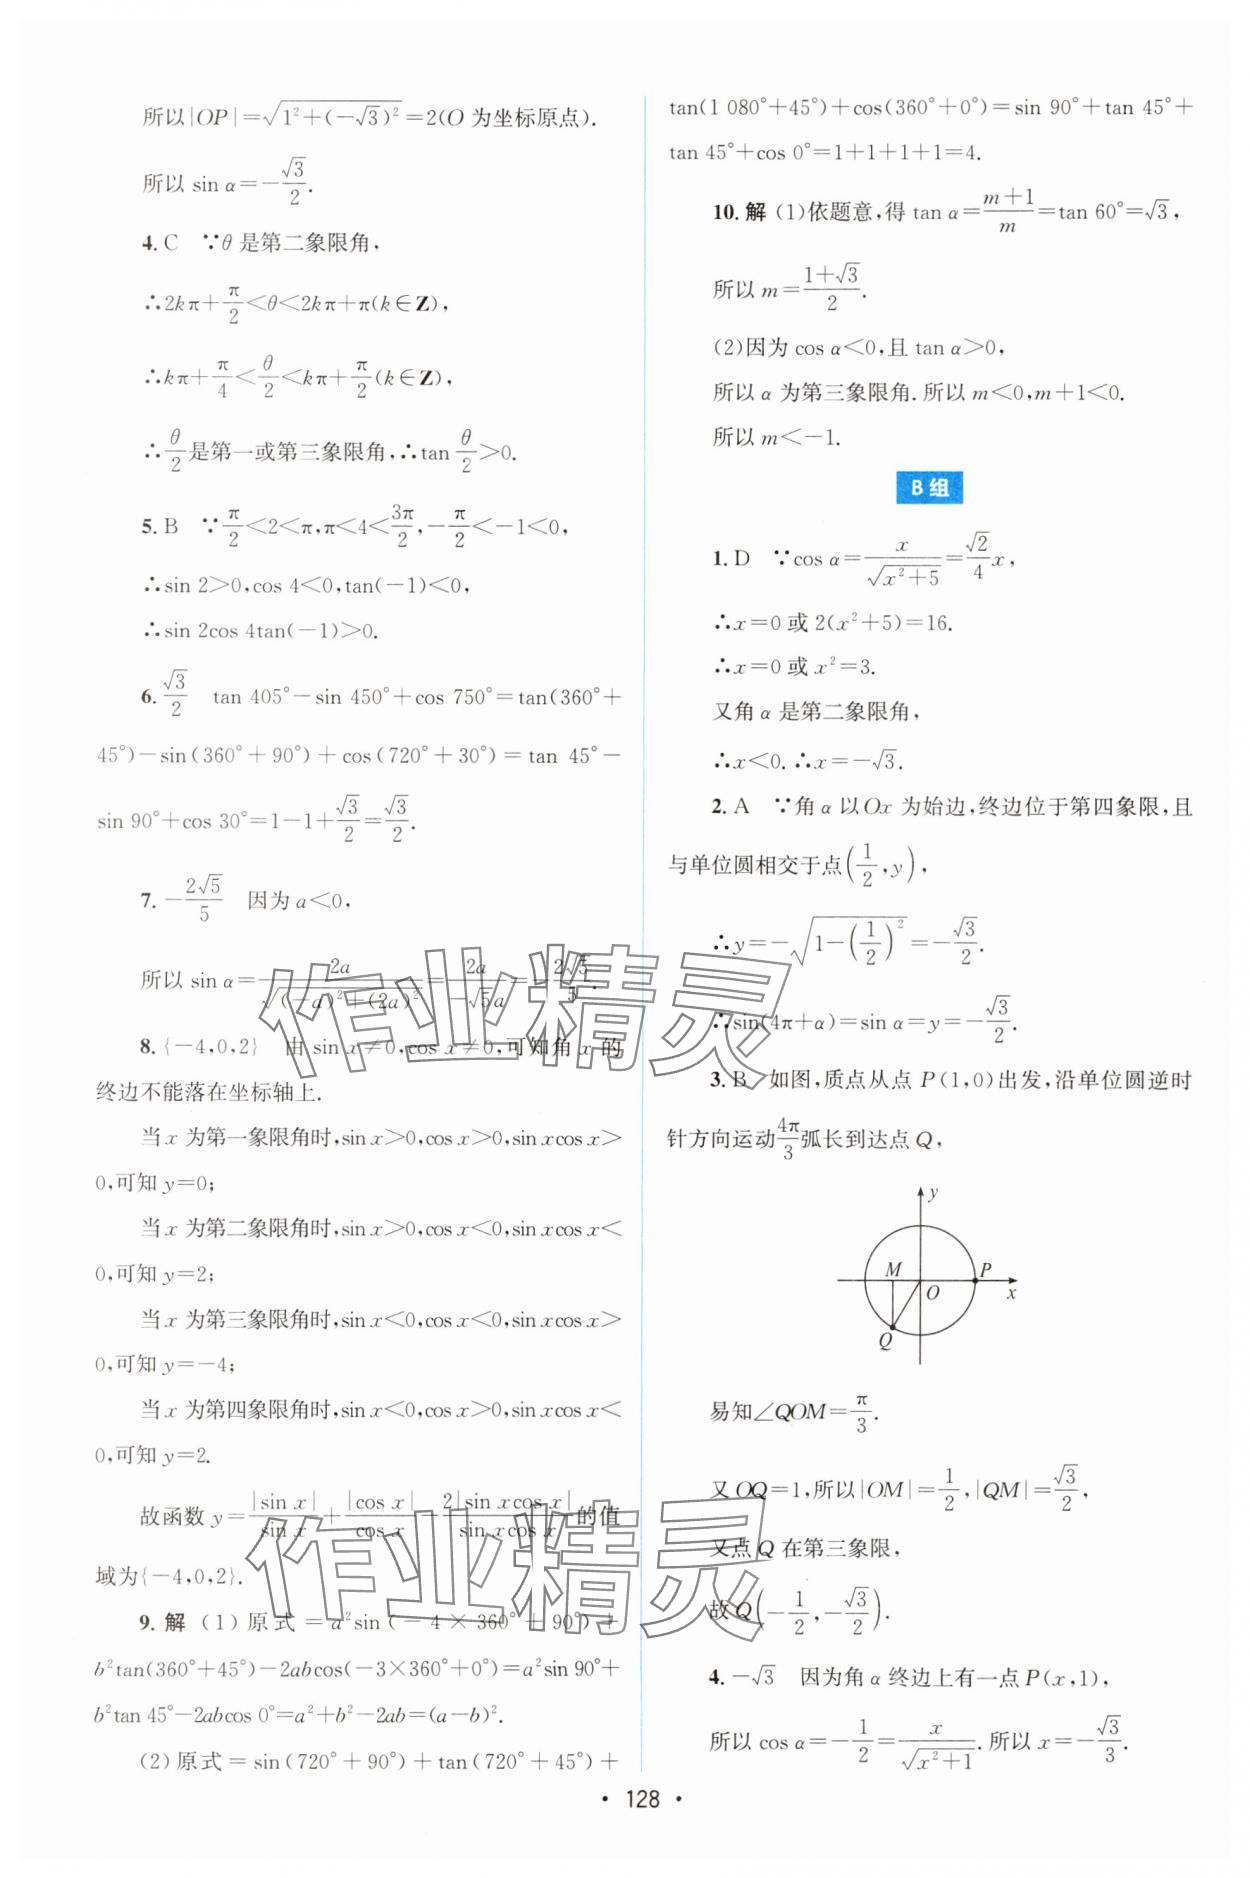 所以|OP|=√(1²+(-√3)²)=2(O 为坐标原点).
所以 sin α=-√3/2.
4. C ∵θ 是第二象限角,
∴2kπ+π/2<θ<2kπ+π(k∈Z),
∴kπ+π/4<θ/2<kπ+π/2(k∈Z),
∴θ/2是第一或第三象限角,∴tan θ/2>0.
5. B ∵π/2<2<π,π<4<3π/2,-π/2<-1<0,
∴sin 2>0,cos 4<0,tan(-1)<0,
∴sin 2cos 4tan(-1)>0.
6. √3/2 tan 405°-sin 450°+cos 750°=tan(360°+
45°)-sin(360°+90°)+cos(720°+30°)=tan 45°-
sin 90°+cos 30°=1-1+√3/2=√3/2.
7. -2√5/5 因为 a<0,
所以 sin α=2a/√((-a)²+(2a)²)=2a/(-√5a)=-2√5/5.
8. {-4,0,2} 由 sin x≠0,cos x≠0,可知角 x 的
终边不能落在坐标轴上.
当 x 为第一象限角时,sin x>0,cos x>0,sin xcos x>
0,可知 y=0;
当 x 为第二象限角时,sin x>0,cos x<0,sin xcos x<
0,可知 y=2;
当 x 为第三象限角时,sin x<0,cos x<0,sin xcos x>
0,可知 y=-4;
当 x 为第四象限角时,sin x<0,cos x>0,sin xcos x<
0,可知 y=2.
故函数 y=|sin x|/sin x+|cos x|/cos x-2|sin xcos x|/sin xcos x的值
域为{-4,0,2}.
9. 解 (1)原式=a²sin(-4×360°+90°)+
b²tan(360°+45°)-2abcos(-3×360°+0°)=a²sin 90°+
b²tan 45°-2abcos 0°=a²+b²-2ab=(a-b)².
(2)原式=sin(720°+90°)+tan(720°+45°)+
tan(1 080°+45°)+cos(360°+0°)=sin 90°+tan 45°+
tan 45°+cos 0°=1+1+1+1=4.
10. 解 (1)依题意,得 tan α=(m+1)/m=tan 60°=√3,
所以 m=(1+√3)/2.
(2)因为 cos α<0,且 tan α>0,
所以 α 为第三象限角.所以 m<0,m+1<0.
所以 m<-1.
B 组
1. D ∵cos α=x/√(x²+5)=√2/4 x,
∴x=0 或 2(x²+5)=16.
∴x=0 或 x²=3.
又角 α 是第二象限角,
∴x<0.∴x=-√3.
2. A ∵角 α 以 Ox 为始边,终边位于第四象限,且
与单位圆相交于点(1/2,y),
∴y=-√(1-(1/2)²)=-√3/2.
∴sin(4π+α)=sin α=y=-√3/2.
3. B 如图,质点从点 P(1,0)出发,沿单位圆逆时
针方向运动4π/3弧长到达点 Q,
y
M
P
O
x
Q
易知∠QOM=π/3.
又 OQ=1,所以|OM|=1/2,|QM|=√3/2,
又点 Q 在第三象限,
故 Q(-1/2,-√3/2).
4. -√3 因为角 α 终边上有一点 P(x,1),
所以 cos α=-1/2=x/√(x²+1).所以 x=-√3/3.
• 128 •
作业精灵
作业精灵